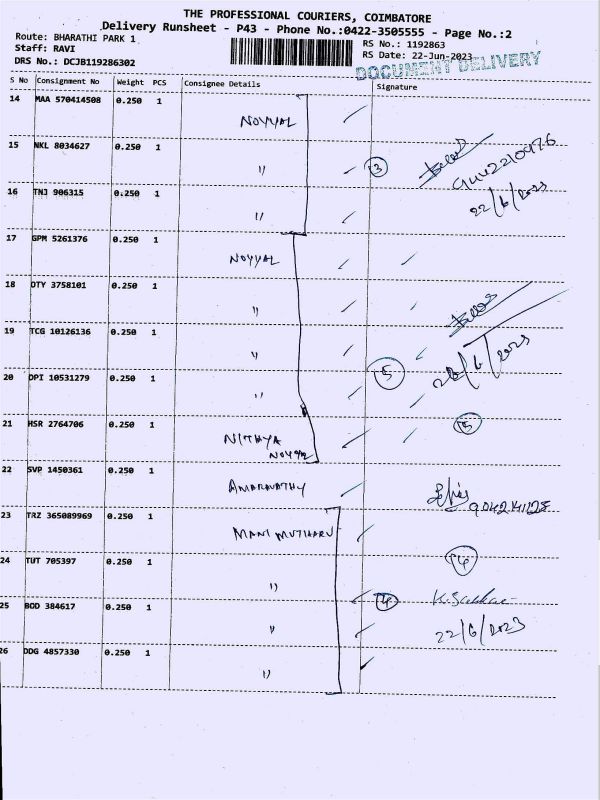 THE PROFESSIONAL COURIERS, COIMBATORE
Delivery Runsheet - P43 - Phone No.:0422-3505555 - Page No.:2
Route: BHARATHI PARK 1
Staff: RAVI
DRS No.: DCJB119286302
RS No.: 1192863
RS Date: 22-Jun-2023
DOCUMENT DELIVERY
S No Consignment No Weight PCS Consignee Details Signature
14 MAA 570414508 0.250 1 NOYYAL
15 NKL 8034627 0.250 1 " 3
22/6/2023
16 TNJ 906315 0.250 1 "
17 GPM 5261376 0.250 1 NOYYAL
18 OTY 3758101 0.250 1 "
19 TCG 10126136 0.250 1 "
20 DPI 10531279 0.250 1 " 5
21 HSR 2764706 0.250 1 NITHYA
NOYYAL
22 SVP 1450361 0.250 1 AMARAVATHY
23 TRZ 365089969 0.250 1 MANI MUTHARU
24 TUT 705397 0.250 1 "
25 BOD 384617 0.250 1 " 4
22/6/2023
26 DDG 4857330 0.250 1 "